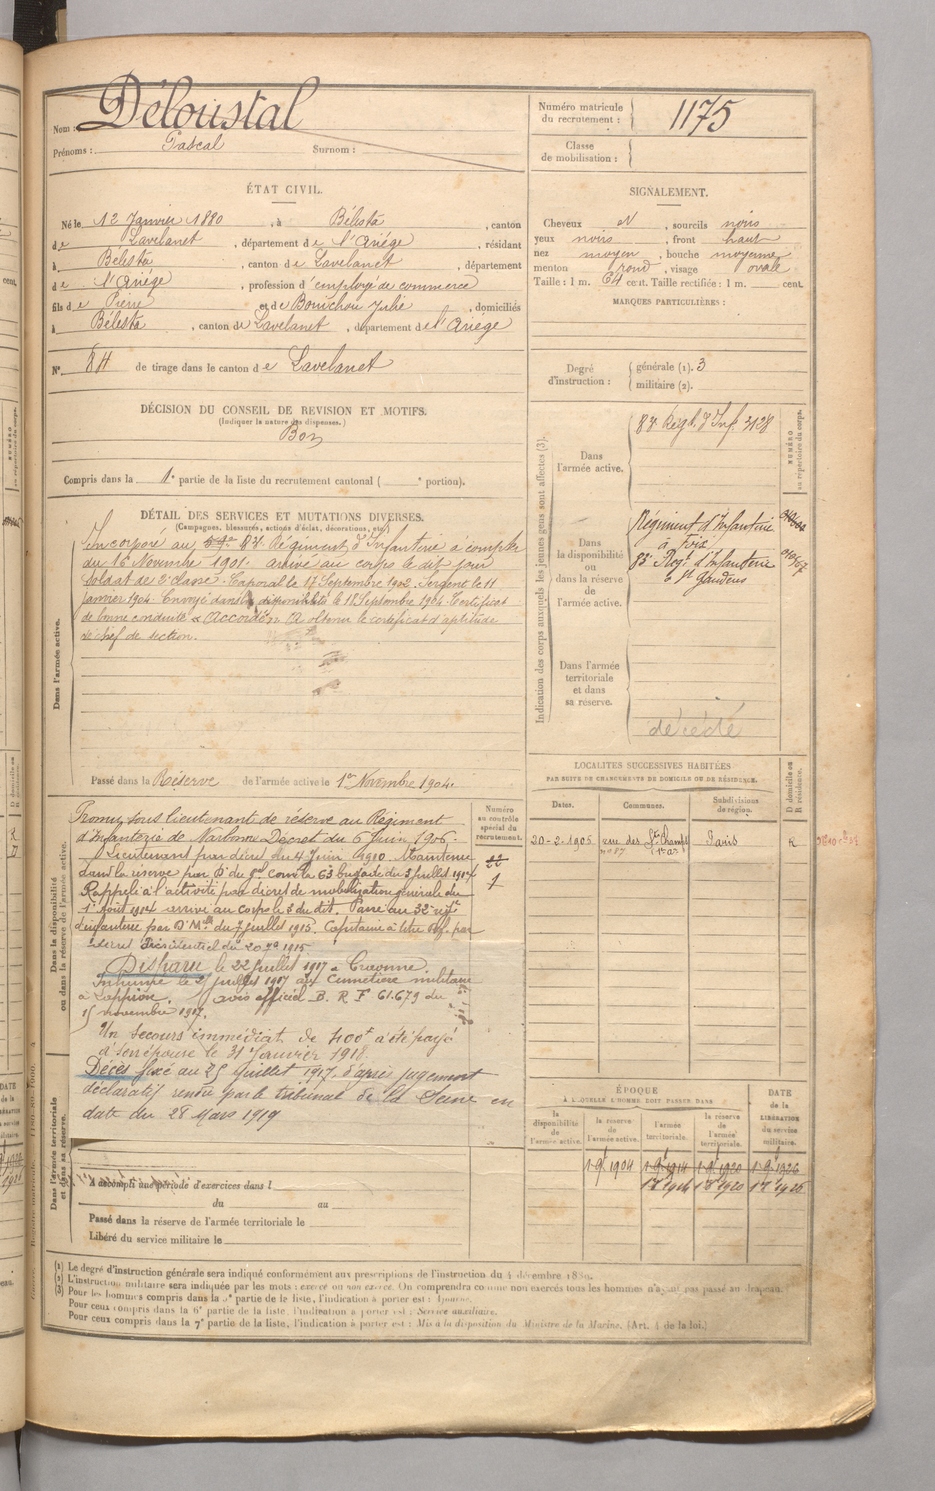 Nom : Déloustal
Prénoms : Pascal Surnom :
Numéro matricule du recrutement : 1175
Classe de mobilisation :
ÉTAT CIVIL.
Né le 12 Janvier 1880, à Bélesta, canton
de Lavelanet, département de l'Ariége, résidant
à Bélesta, canton de Lavelanet, département
de l'Ariége, profession d'employé de commerce
fils de Pierre et de Bouichou Julie, domiciliés
à Bélesta, canton de Lavelanet, département de l'Ariége
N° 84 de tirage dans le canton de Lavelanet
SIGNALEMENT.
Cheveux N, sourcils noirs
yeux noirs, front haut
nez moyen, bouche moyenne
menton rond, visage ovale
Taille : 1 m. 64 cent. Taille rectifiée : 1 m. cent.
MARQUES PARTICULIÈRES :
Degré d'instruction : générale (1). 3
militaire (2).
DÉCISION DU CONSEIL DE REVISION ET MOTIFS.
(Indiquer la nature des dispenses.)
Bon
Compris dans la 1e partie de la liste du recrutement cantonal ( e portion).
DÉTAIL DES SERVICES ET MUTATIONS DIVERSES.
(Campagnes, blessures, actions d'éclat, décorations, etc.)
Dans l'armée active.
Incorporé au 83e Régiment d'Infanterie à compter
du 16 Novembre 1901. arrivé au corps le dit jour
Soldat de 2e classe. Caporal le 17 Septembre 1902. Sergent le 11
Janvier 1904. Envoyé dans la disponibilité le 18 Septembre 1904. Certificat
de bonne conduite "Accordé". A obtenu le certificat d'aptitude
de chef de section.
Passé dans la Réserve de l'armée active le 1er Novembre 1904.
Indication des corps auxquels les jeunes gens sont affectés (3).
NUMÉRO au répertoire du corps.
Dans l'armée active.
83e Régt d'Inf. 3128
Dans la disponibilité ou dans la réserve de l'armée active.
Régiment d'Infanterie
à Foix
83e Régt d'Infanterie
à St Gaudens
Dans l'armée territoriale et dans sa réserve.
décédé
LOCALITES SUCCESSIVES HABITÉES
PAR SUITE DE CHANGEMENTS DE DOMICILE OU DE RÉSIDENCE.
Dates. Communes. Subdivisions de région. D domicile ou R résidence.
20-2-1905 rue des Pts Champs Paris R
n° 87
Dans la disponibilité ou dans la réserve de l'armée active.
Numéro au contrôle spécial du recrutement.
Promu sous lieutenant de réserve au Régiment
d'infanterie de Narbonne Décret du 6 Juin 1906.
Lieutenant par décret du 4 Juin 1910. Maintenu
dans la réserve par D. du gal Comt la 63 brigade du 3 Juillet 1914
Rappelé à l'activité par décret de mobilisation générale du
1er Août 1914 arrivé au corps le 3 du dit. Passé au 32e régt
d'infanterie par D. Mlle du 7 Juillet 1915. Capitaine à titre tép. par
décret Présidentiel du 20 1915
Disparu le 22 Juillet 1917 à Craonne.
Inhumé le 25 Juillet 1917 au Cimetière militaire
à avis officiel B. R F 61.679 du
15 novembre 1917.
Un secours immédiat de 400f a été payé
à son épouse le 31 Janvier 1918.
Décès fixé au 25 Juillet 1917 d'après jugement
déclaratif rendu par le tribunal de la Seine en
date du 28 Mars 1919
Dans l'armée territoriale et dans sa réserve.
A accompli une période d'exercices dans l
du au
Passé dans la réserve de l'armée territoriale le
Libéré du service militaire le
ÉPOQUE
À LAQUELLE L'HOMME DOIT PASSER DANS
la disponibilité de l'armée active.
la réserve de l'armée active.
l'armée territoriale.
la réserve de l'armée territoriale.
DATE de la LIBÉRATION du service militaire.
1-9e 1904 1-9e 1914 1-9e 1920 1-9e 1926
(1) Le degré d'instruction générale sera indiqué conformément aux prescriptions de l'instruction du 4 décembre 1889.
(2) L'instruction militaire sera indiquée par les mots : exercé ou non exercé. On comprendra comme non exercés tous les hommes n'ayant pas passé au drapeau.
(3) Pour les hommes compris dans la 5e partie de la liste, l'indication à porter est : Ajourné.
Pour ceux compris dans la 6e partie de la liste, l'indication à porter est : Service auxiliaire.
Pour ceux compris dans la 7e partie de la liste, l'indication à porter est : Mis à la disposition du Ministre de la Marine. (Art. 4 de la loi.)